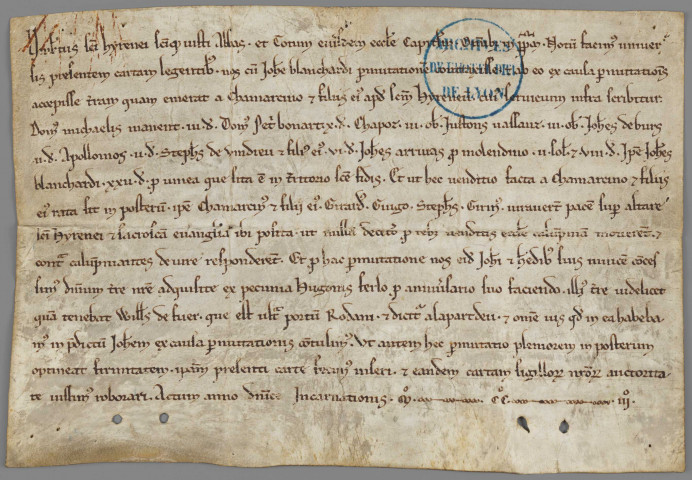 bertus sci hyrenei sciq; iusti Abbas. et Totum eiusdem ecclie Capitulum. Omnib; in ppm. Notum facim' univer
sis presentem cartam legentib'. nos cum Johe blanchardi pmutationem ab eo ex causa pmutationis
accepisse tram quam emerat a Chamarcino & filiis ei' apd scm Hyreneu. cui' servicium infra scribitur.
Dom' michaelis manent. iii. d. Dom' Petr' bonart. x. d. Chapoz. iii. ob. Justons vassaur. iii. ob. Johes de buris
ii. d. Apollomos. ii. d. Stephs de vindreu & fili' ei'. vi. d. Johes arrivas p molendino. ii. sol. & viii. d. Ipe Johes
blanchardi. xxii. d. p vinea que sita e in territorio sce fidis. Et ut hec venditio facta a Chamarcino & filiis
ei' rata sit in posterum. ipse Chamarcin' & filii ei'. Girard'. Guigo. Stephs. Girin'. iuraverut pacem sup altare
sci Hyrenei & sacrosca euangelia ibi posita. ut nulla decetero p reb; venditis eccle calupniam moverent. &
contra calupniantes de iure responderent. Et p hac pmutatione nos eid Johi & hedib; suis invicem conces
sim' dimum tre nre adquisite ex pecunia Hugonis ferlo p anniversario suo faciendo. illi' tre videlicet
qua tenebat Wills de fuer. que est ult portum Rodani. & dicitur alapardeu. & omne ius qd in ea habeba
m' in pdictu Johem ex causa pmutationis contulim'. Ut autem hec pmutatio pleniorem in posterum
optineat firmitatem. ipam presenti carte fecim' inseri. & eandem cartam sigillor nror auctorita
te iussim' roborari. Actum anno dnice Incarnationis. M. CC. iii.
ARCHIVES
DE LYON